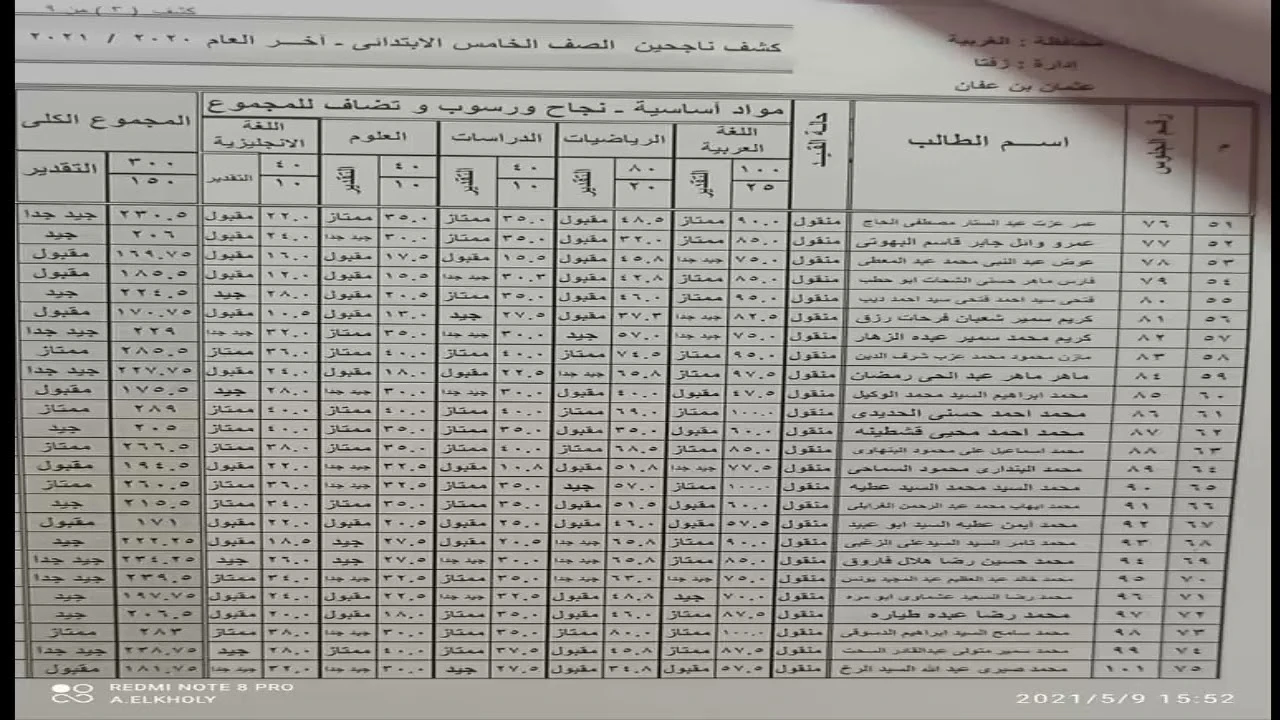 كشف (٣) من ٩
محافظة : الغربية
إدارة : زفتا
عثمان بن عفان
كشف ناجحين الصف الخامس الابتدائى - آخر العام ٢٠٢٠ / ٢٠٢١
م رقم الجلوس اسم الطالب حالة القيد مواد أساسية - نجاح ورسوب و تضاف للمجموع المجموع الكلى
اللغة العربية الرياضيات الدراسات العلوم اللغة الانجليزية
١٠٠ التقدير ٨٠ التقدير ٤٠ التقدير ٤٠ التقدير ٤٠ التقدير ٣٠٠ التقدير
٢٥ ٢٠ ١٠ ١٠ ١٠ ١٥٠
٥١ ٧٦ عمر عزت عبد الستار مصطفى الحاج منقول ٩٠.٠ ممتاز ٤٨.٥ مقبول ٣٥.٠ ممتاز ٣٥.٠ ممتاز ٢٢.٠ مقبول ٢٣٠.٥ جيد جدا
٥٢ ٧٧ عمرو وائل جابر قاسم البهوتى منقول ٨٥.٠ ممتاز ٣٢.٠ مقبول ٣٥.٠ ممتاز ٣٠.٠ جيد جدا ٢٤.٠ مقبول ٢٠٦ جيد
٥٣ ٧٨ عوض عبد النبى محمد عبد المعطى منقول ٧٥.٠ جيد جدا ٤٥.٨ مقبول ١٥.٥ مقبول ١٧.٥ مقبول ١٦.٠ مقبول ١٦٩.٧٥ مقبول
٥٤ ٧٩ فارس ماهر حسنى الشحات ابو حطب منقول ٨٥.٠ ممتاز ٤٢.٨ مقبول ٣٠.٣ جيد جدا ١٥.٥ مقبول ١٢.٠ مقبول ١٨٥.٥ مقبول
٥٥ ٨٠ فتحى سيد احمد فتحى سيد احمد ديب منقول ٩٥.٠ ممتاز ٤٦.٠ مقبول ٣٥.٠ ممتاز ٢٠.٥ مقبول ٢٨.٠ جيد ٢٢٤.٥ جيد
٥٦ ٨١ كريم سمير شعبان فرحات رزق منقول ٨٢.٥ جيد جدا ٣٧.٣ مقبول ٢٧.٥ جيد ١٣.٠ مقبول ١٠.٥ مقبول ١٧٠.٧٥ مقبول
٥٧ ٨٢ كريم محمد سمير عبده الزهار منقول ٧٥.٠ جيد جدا ٥٧.٠ جيد ٣٠.٠ جيد جدا ٣٥.٠ ممتاز ٣٢.٠ جيد جدا ٢٢٩ جيد جدا
٥٨ ٨٣ مازن محمود محمد عزب شرف الدين منقول ٩٥.٠ ممتاز ٧٤.٥ ممتاز ٤٠.٠ ممتاز ٤٠.٠ ممتاز ٣٦.٠ ممتاز ٢٨٥.٥ ممتاز
٥٩ ٨٤ ماهر ماهر عبد الحى رمضان منقول ٩٧.٥ ممتاز ٦٥.٨ جيد جدا ٢٢.٥ مقبول ١٨.٠ مقبول ٢٤.٠ مقبول ٢٢٧.٧٥ جيد جدا
٦٠ ٨٥ محمد ابراهيم السيد محمد الوكيل منقول ٤٧.٥ مقبول ٤٠.٠ مقبول ٣٠.٠ جيد جدا ٣٠.٠ جيد جدا ٢٨.٠ جيد ١٧٥.٥ مقبول
٦١ ٨٦ محمد احمد حسنى الحديدى منقول ١٠٠.٠ ممتاز ٦٩.٠ ممتاز ٤٠.٠ ممتاز ٤٠.٠ ممتاز ٤٠.٠ ممتاز ٢٨٩ ممتاز
٦٢ ٨٧ محمد احمد محيى قشطينه منقول ٦٠.٠ مقبول ٣٥.٠ مقبول ٣٥.٠ ممتاز ٣٥.٠ ممتاز ٤٠.٠ ممتاز ٢٠٥ جيد
٦٣ ٨٨ محمد اسماعيل على محمود البنهاوى منقول ٨٥.٠ ممتاز ٦٨.٥ ممتاز ٣٥.٠ ممتاز ٤٠.٠ ممتاز ٣٨.٠ ممتاز ٢٦٦.٥ ممتاز
٦٤ ٨٩ محمد البندارى محمود السماحى منقول ٧٧.٥ جيد جدا ٥١.٨ مقبول ١٠.٨ مقبول ٣٢.٥ جيد جدا ٢٢.٠ مقبول ١٩٤.٥ مقبول
٦٥ ٩٠ محمد السيد محمد السيد عطيه منقول ١٠٠.٠ ممتاز ٥٧.٠ جيد ٣٥.٠ ممتاز ٣٢.٥ جيد جدا ٣٦.٠ ممتاز ٢٦٠.٥ ممتاز
٦٦ ٩١ محمد ايهاب محمد عبد الرحمن الغرابلى منقول ٦٠.٠ مقبول ٥١.٥ مقبول ٣٥.٠ ممتاز ٣٥.٠ ممتاز ٣٤.٠ ممتاز ٢١٥.٥ جيد
٦٧ ٩٢ محمد أيمن عطيه السيد ابو عبيد منقول ٥٧.٥ مقبول ٤٦.٠ مقبول ٢٥.٠ مقبول ٢٠.٥ مقبول ٢٢.٠ مقبول ١٧١ مقبول
٦٨ ٩٣ محمد تامر السيد السيدعلى الزغبى منقول ٩٠.٠ ممتاز ٦٥.٨ جيد جدا ٢٠.٥ مقبول ٢٧.٥ جيد ١٨.٥ مقبول ٢٢٢.٢٥ جيد
٦٩ ٩٤ محمد حسين رضا هلال فاروق منقول ٨٥.٠ ممتاز ٦٥.٨ جيد جدا ٣٠.٠ جيد جدا ٢٧.٥ جيد ٢٦.٠ جيد ٢٣٤.٢٥ جيد جدا
٧٠ ٩٥ محمد خالد عبد العظيم عبد المجيد يونس منقول ٧٥.٠ جيد جدا ٦٣.٠ جيد جدا ٣٥.٠ ممتاز ٣٢.٥ جيد جدا ٣٤.٠ ممتاز ٢٣٩.٥ جيد جدا
٧١ ٩٦ محمد رضا السعيد عشماوى ابو مره منقول ٧٠.٠ جيد ٤٨.٨ مقبول ٣٢.٥ جيد جدا ٢٢.٥ مقبول ٢٤.٠ مقبول ١٩٧.٧٥ جيد
٧٢ ٩٧ محمد رضا عبده طياره منقول ٨٧.٥ ممتاز ٤٦.٠ مقبول ٣٥.٠ ممتاز ١٨.٠ مقبول ٢٠.٠ مقبول ٢٠٦.٥ جيد
٧٣ ٩٨ محمد سامح السيد ابراهيم الدسوقى منقول ١٠٠.٠ ممتاز ٨٠.٠ ممتاز ٣٥.٠ ممتاز ٣٠.٠ جيد جدا ٣٨.٠ ممتاز ٢٨٣ ممتاز
٧٤ ٩٩ محمد سمير متولى عبدالقادر السحت منقول ٨٧.٥ ممتاز ٤٥.٨ مقبول ٣٧.٥ ممتاز ٤٠.٠ ممتاز ٢٨.٠ جيد ٢٣٨.٧٥ جيد جدا
٧٥ ١٠١ محمد صبرى عبد الله السيد الرخ منقول ٥٧.٥ مقبول ٣٤.٨ مقبول ٢٧.٥ جيد ٣٠.٠ جيد جدا ٣٢.٠ جيد جدا ١٨١.٧٥ مقبول
REDMI NOTE 8 PRO
A.ELKHOLY
2021/5/9 15:52